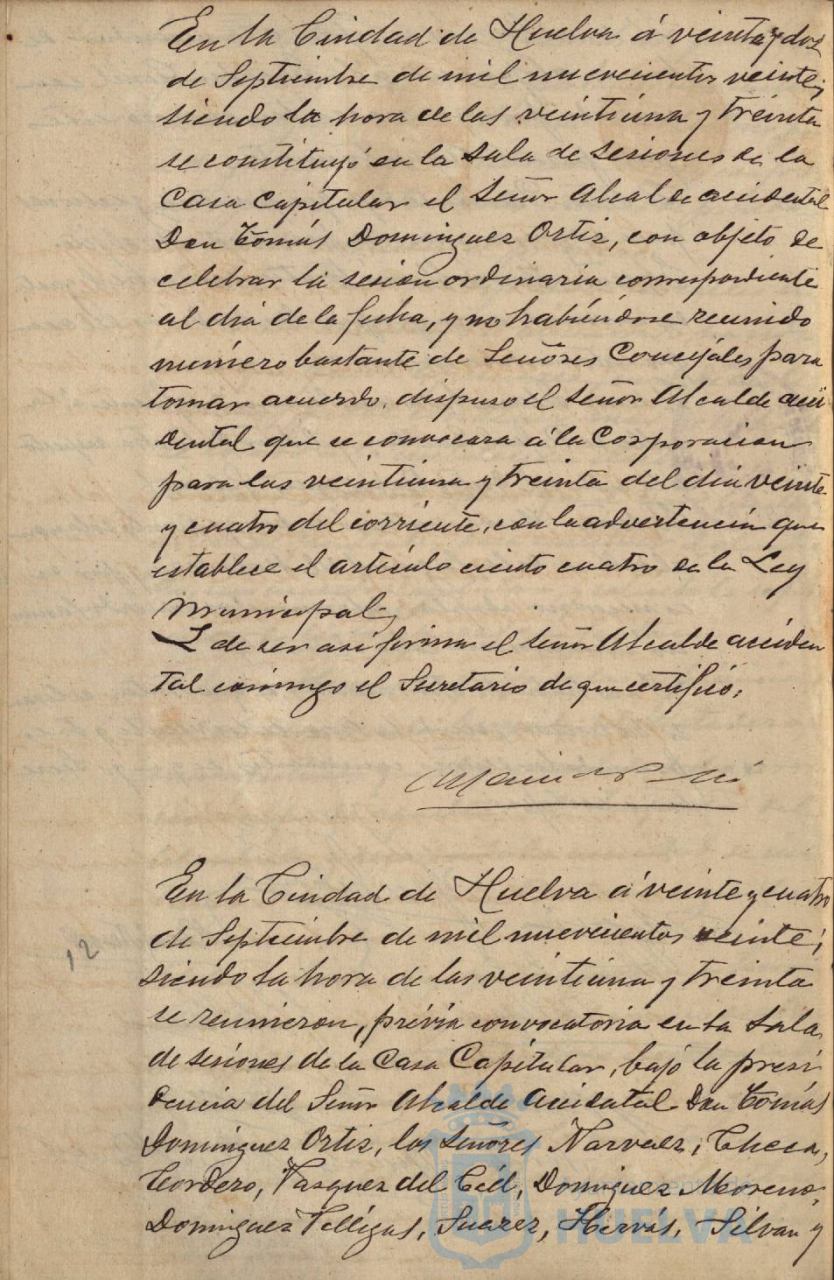 En la Ciudad de Huelva á veinte y dos
de Septiembre de mil nuevecientos veinte;
siendo la hora de las veintiuna y treinta
se constituyó en la Sala de sesiones de la
Casa Capitular el Señor Alcalde accidental
Don Tomás Dominguez Ortiz, con objeto de
celebrar la sesión ordinaria correspondiente
al dia de la fecha, y no habiéndose reunido
número bastante de Señores Concejales para
tomar acuerdo, dispuso el Señor Alcalde acci
dental que se convocara á la Corporacion
para las veintiuna y treinta del dia veinte
y cuatro del corriente, con la advertencia que
establece el artículo ciento cuatro de la Ley
Municipal.
Y de ser asi firma el Señor Alcalde acciden
tal conmigo el Secretario de que certifico.
En la Ciudad de Huelva á veinte y cuatro
12
de Septiembre de mil nuevecientos veinte;
siendo la hora de las veintiuna y treinta
se reunieron, prévia convocatoria en la Sala
de sesiones de la Casa Capitular, bajo la presi
dencia del Señor Alcalde Accidatal Don Tomás
Dominguez Ortiz, los Señores Narvaez, Checa,
Cordero, Vazquez del Cid, Dominguez Moreno,
Dominguez Velligas, Suarez, Hervás, Silvan y
HUELVA